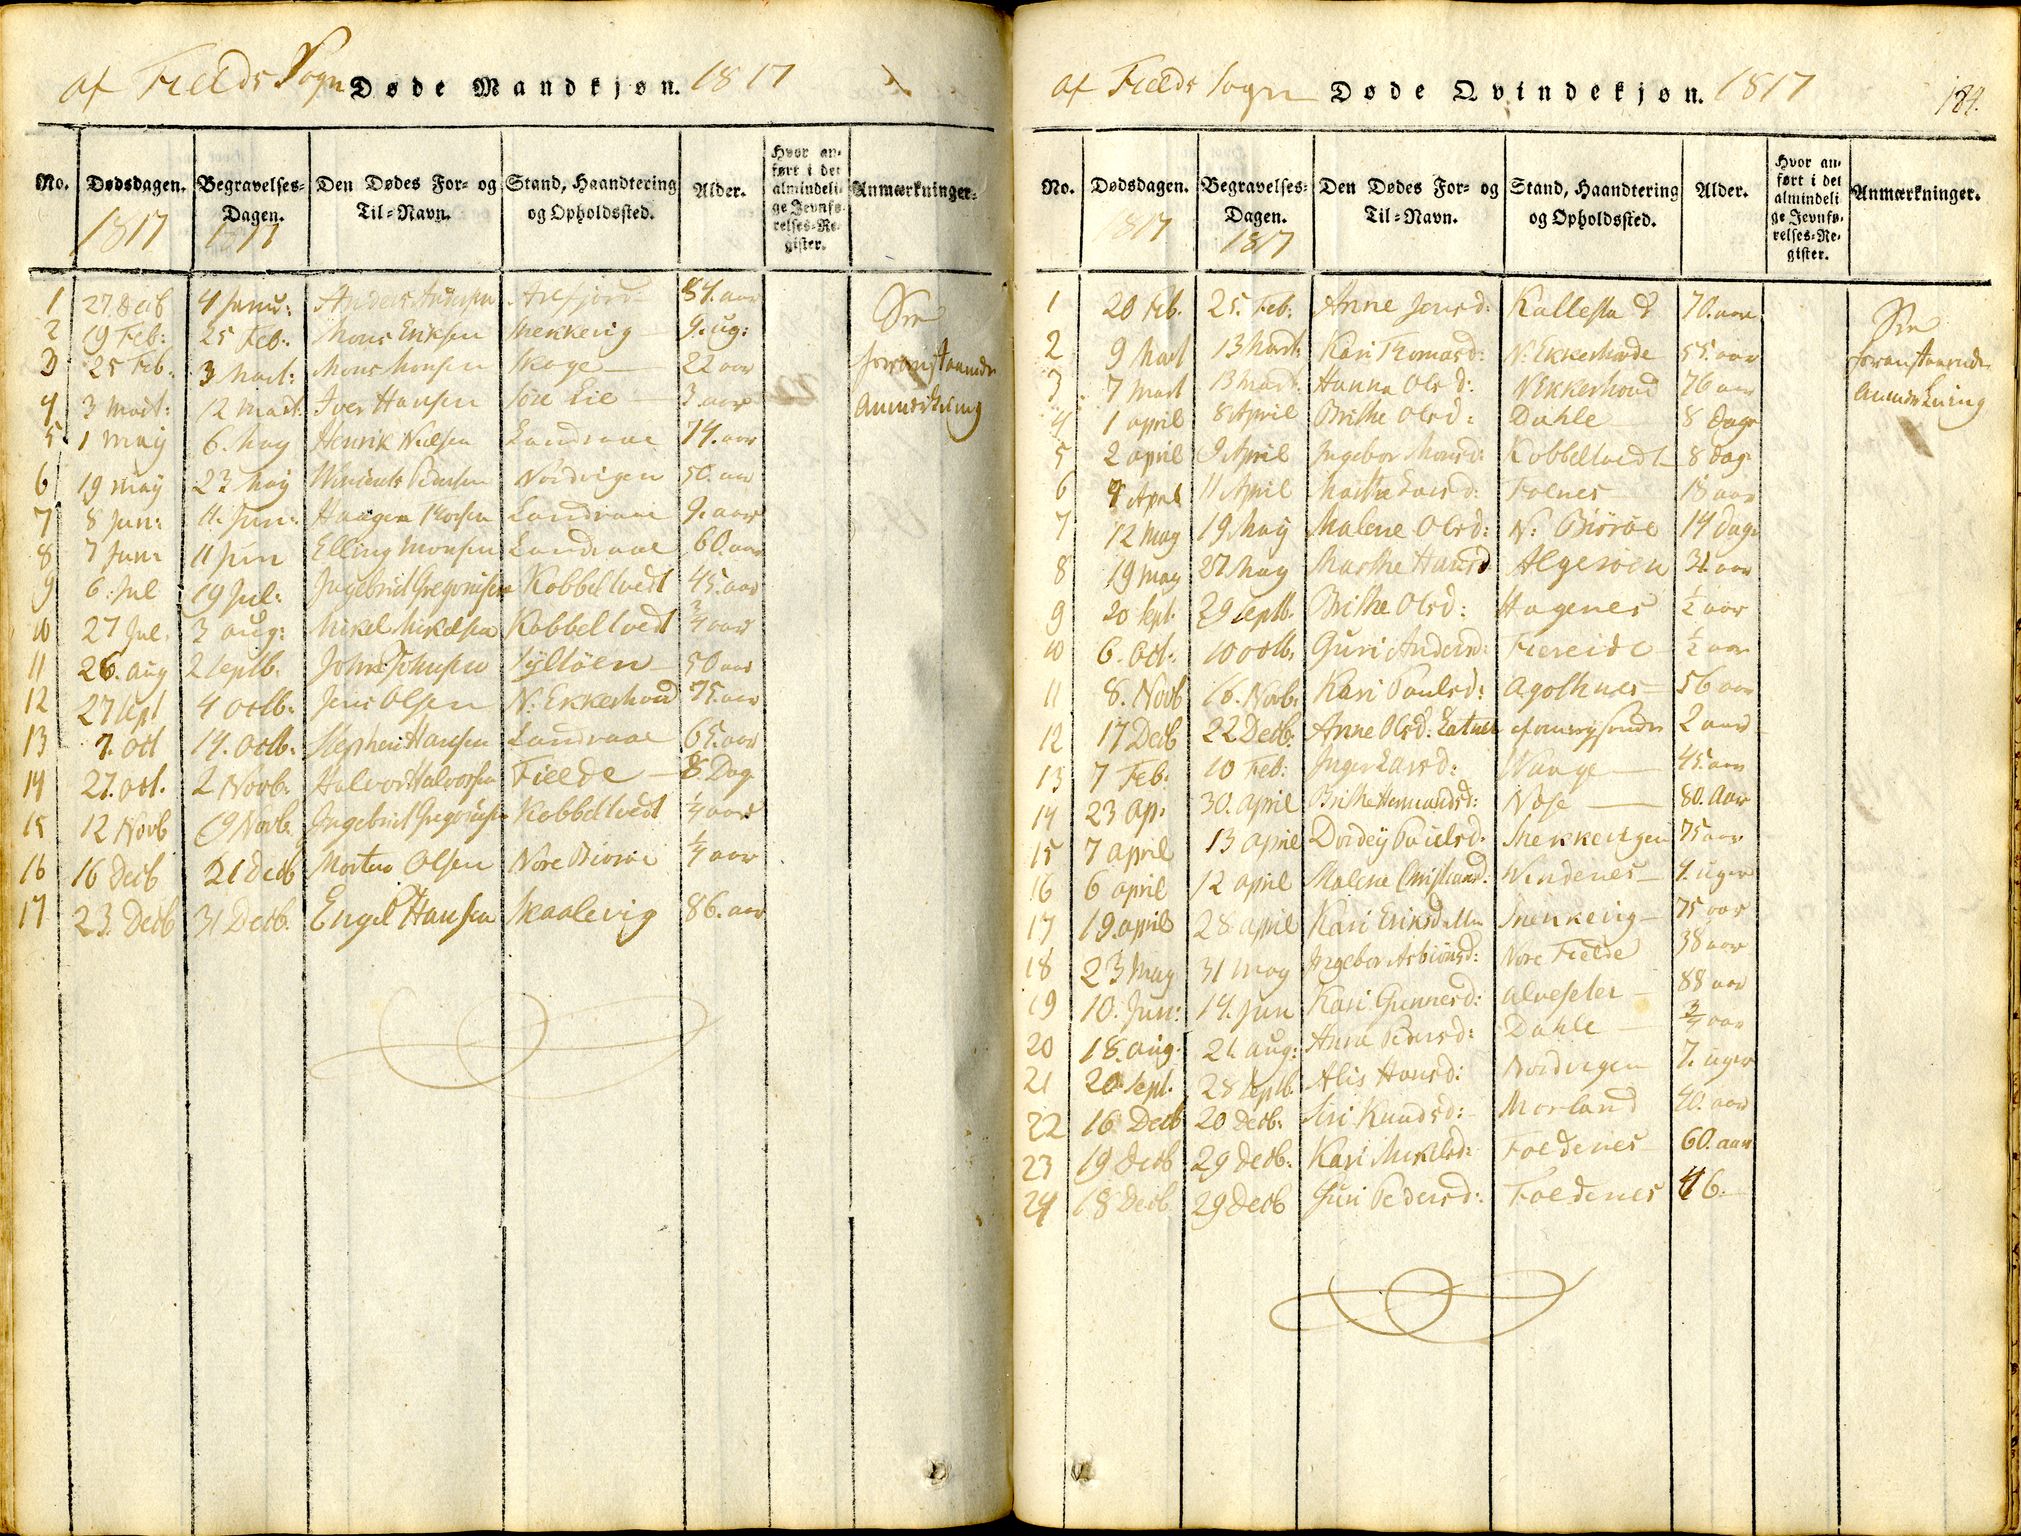 af Fields Sogn Døde Mandkjøn. 1817
No. Dødsdagen. 1817 Begravelses-Dagen. 1817 Den Dødes For- og Til-Navn. Stand, Haandtering og Opholdssted. Alder. Hvor anført i det almindelige Jevnførelses-Register. Anmærkninger.
1 27 Decb 4 Janu: Anders Andersen 84. aar
2 19 Feb: 25 Feb: Mons Eriksen Snekkevig 9. ug:
3 25 Feb. 3 Mart: Mons Monsen Skoge 22 aar
4 3 Mart: 12 Mart Iver Hansen Søre Lie 3 aar
5 1 May 6. May Henrik Nielsen Landraae 74. aar
6 19 May 23 May Pedersen Nordvigen 50. aar
7 8 Jun: 11. Jun: Haagen Landraae 9. aar
8 7 Jun: 11 Jun Elling Monsen Landraae 60. aar
9 6. Jul 19 Jul: Ingebrict Gregoriusen Kobbeltvedt 45. aar
10 27 Jul. 3 aug: Mikel Mikelsen Kobbeltvedt 3/4 aar
11 26. aug 2 Septb. John Johnsen Syltöen 50 aar
12 27 Sept 4 octb. Jens Olsen N: Ekkerhovd 75. aar
13 7. oct 14. octb. Stephen Hansen Landraae 65. aar
14 27. oct. 2 Novb. Halvor Halvorsen Fielde 8. Dag
15 12 Novb 19 Novb. Ingebrict Gregoriusen Kobbeltvedt 1/4 aar
16 16 Decb 21 Decb Morten Olsen Nore Biorøe 1/4 aar
17 23. Decb 31 Decb. Engel Hansen Skaalevig 86. aar
See foranstaaende Anmerkning
af Fields Sogn Døde Qvindekjøn. 1817 184.
No. Dødsdagen. 1817 Begravelses-Dagen. 1817 Den Dødes For- og Til-Navn. Stand, Haandtering og Opholdssted. Alder. Hvor anført i det almindelige Jevnførelses-Register. Anmærkninger.
1 20 Feb. 25. Feb: Anne Jensd: Kallestad 70. aar
2 9 Mart 13 Mart: Kari Thomasd: N: Ekkerhovde 55. aar
3 7 Mart 13 Mart: Hanna Olsd: N Ekkerhovd 76 aar
4 1 april 8 April Brithe Olsd: Dahle 8 dage
5 2 april 9 April Ingebor Monsd: Kobbeltvedt 8 dag
6 7 April 11 April Marthe Larsd: Folnes 18 aar
7 12 May 19 May Malene Olsd: N: Biörøe 14 dage
8 19 May 27. May Marthe Hansd Algeröen 34 aar
9 20 Sept. 29 Septb. Brithe Olsd: Hagenes 1/2 aar
10 6. Oct. 10 octb. Guri Andersd: Fiereide 1/2 aar
11 8. Novb 16. Novb. Kari Paulsd: Agothnes 56 aar
12 17 Decb 22 Decb. Anne Olsd: 2 aar
13 7 Feb. 10 Feb: Inger Larsd: Wange 45. aar
14 23 ap: 30. april Brithe Hermandsd: Nøse 80. Aar
15 7 april 13 april Dordey Paulsd. Snekkevigen 75 aar
16 6 april 12 april Malene Christiansd. Windenes 4. uger
17 19. april 28 april Kari Eriksdatter Snekkevig 75 aar
18 23 May 31 May Ingebor Asbiönsd: Nore Fielde 38 aar
19 10. Jun: 14. Jun Kari Gunnersd: Alveseter 88 aar
20 18. aug. 21. aug: Anne Pedersd: Dahle 3/4 aar
21 20 Sept. 28 Septb. Alis Hansd: Nordvigen 7. uger
22 16. Decb 20 Decb: Siri Knudsd: Morland 40. aar
23 19 Decb 29 Decb. Kari Mikelsd: Foldenes 60. aar
24 18 Decb 29 Decb Guri Pedersd: Foldenes 46.
See foranstaaende Anmerkning